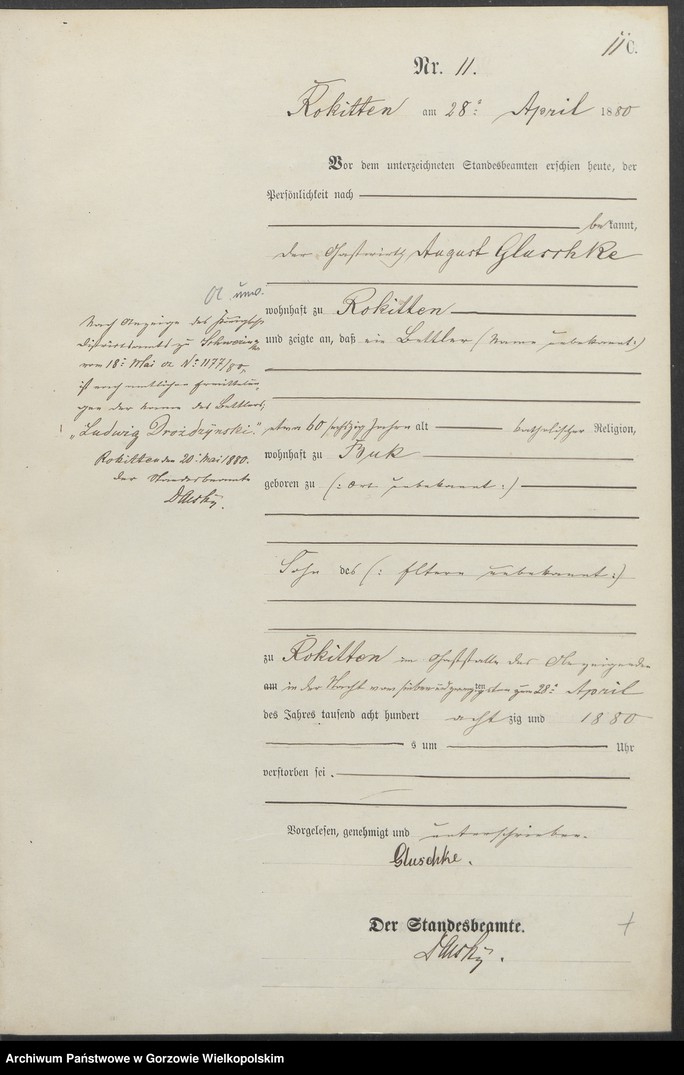 11
C.
Nr. 11.
Rokitten am 28ᵗ: April 1880
Vor dem unterzeichneten Standesbeamten erschien heute, der
Persönlichkeit nach
bekannt,
der Gastwirth August Gluschke
wohnhaft zu Rokitten
und zeigte an, daß ein Bettler (Name unbekannt:)
etwa 60 sechszig Jahre alt katholischer Religion,
wohnhaft zu Buk
geboren zu (: Ort unbekannt :)
Sohn des (: Eltern unbekannt :)
zu Rokitten im Gaststalle des Anzeigenden
am in der Nacht vom siebenundzwanzigsten zum 28ᵗ: April
des Jahres tausend acht hundert achtzig und 1880
s um Uhr
verstorben sei.
Vorgelesen, genehmigt und unterschrieben.
Gluschke.
Der Standesbeamte.
Nach Anzeige des Königlichen
Districtsamts zu Schwerin
vom 18ᵗ: Mai Nº: 1177/80,
ist nach amtlichen Ermittelun-
gen der Name des Bettlers,
"Ludwig Drożdzÿnski."
Rokitten den 20ᵗ: Mai 1880.
Der Standesbeamte
Archiwum Państwowe w Gorzowie Wielkopolskim